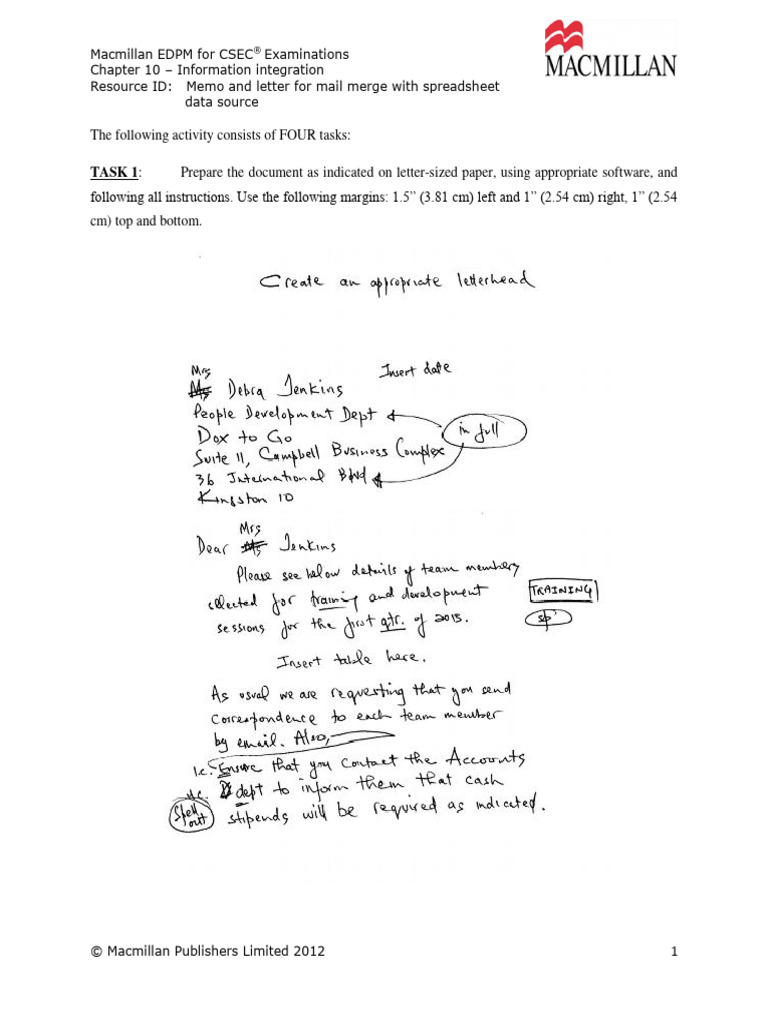 Macmillan EDPM for CSEC® Examinations
Chapter 10 – Information integration
Resource ID: Memo and letter for mail merge with spreadsheet
data source
MACMILLAN
The following activity consists of FOUR tasks:
TASK 1: Prepare the document as indicated on letter-sized paper, using appropriate software, and
following all instructions. Use the following margins: 1.5” (3.81 cm) left and 1” (2.54 cm) right, 1” (2.54
cm) top and bottom.
Create an appropriate letterhead
Mrs
Insert date
Ms Debra Jenkins
People Development Dept
in full
Dox to Go
Suite 11, Campbell Business Complex
36 International Blvd
Kingston 10
Mrs
Dear Ms Jenkins
Please see below details of team members
selected for training and development
TRAINING
sessions for the first qtr. of 2015.
sp
Insert table here.
As usual we are requesting that you send
correspondence to each team member
by email. Also,
l.c. Ensure that you contact the Accounts
u.c. dept to inform them that cash
Spell out
stipends will be required as indicated.
© Macmillan Publishers Limited 2012 1